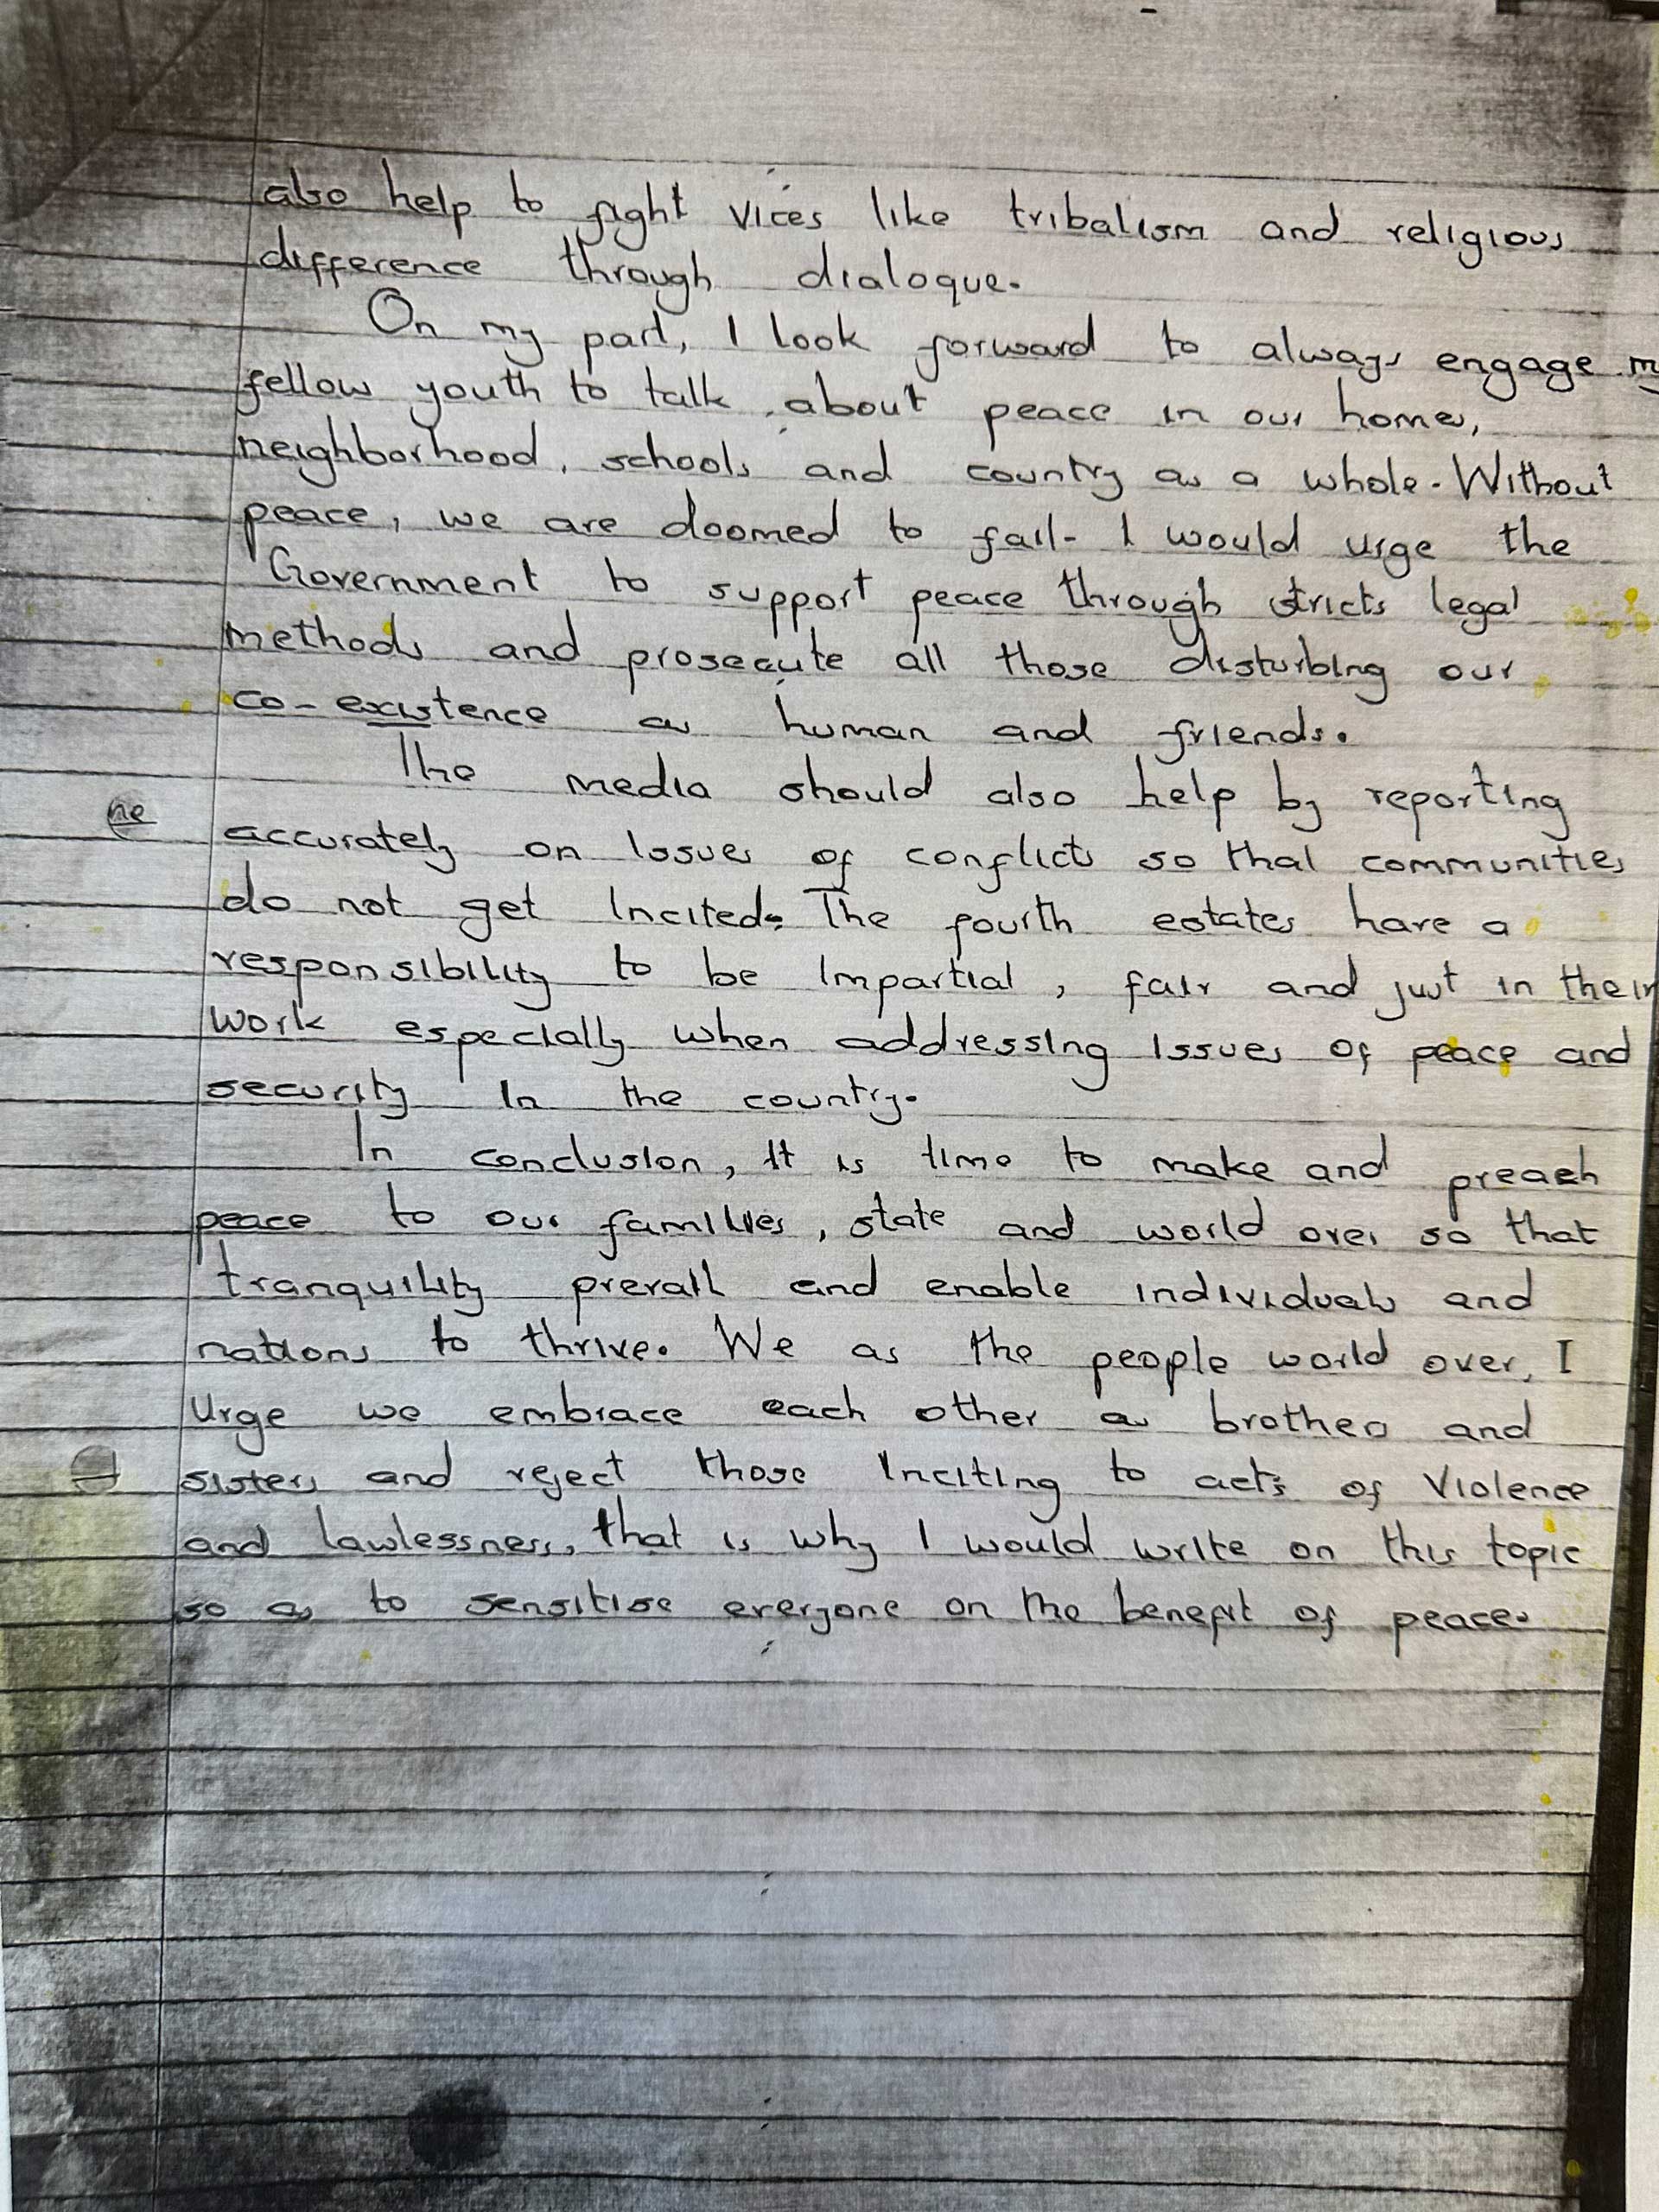 also help to fight vices like tribalism and religious
difference through dialogue.
On my part, I look forward to always engage my
fellow youth to talk about peace in our homes,
neighborhood, schools and country as a whole. Without
peace, we are doomed to fail. I would urge the
Government to support peace through stricts legal
methods and prosecute all those disturbing our
co-existence as human and friends.
The media should also help by reporting
he
accurately on issues of conflicts so that communities
do not get incited. The fourth estates have a
responsibility to be impartial, fair and just in their
work especially when addressing issues of peace and
security in the country.
In conclusion, it is time to make and preach
peace to our families, state and world over so that
tranquility prevail and enable individuals and
nations to thrive. We as the people world over, I
urge we embrace each other as brothers and
sisters and reject those inciting to acts of violence
and lawlessness, that is why I would write on this topic
so as to sensitise everyone on the benefit of peace.